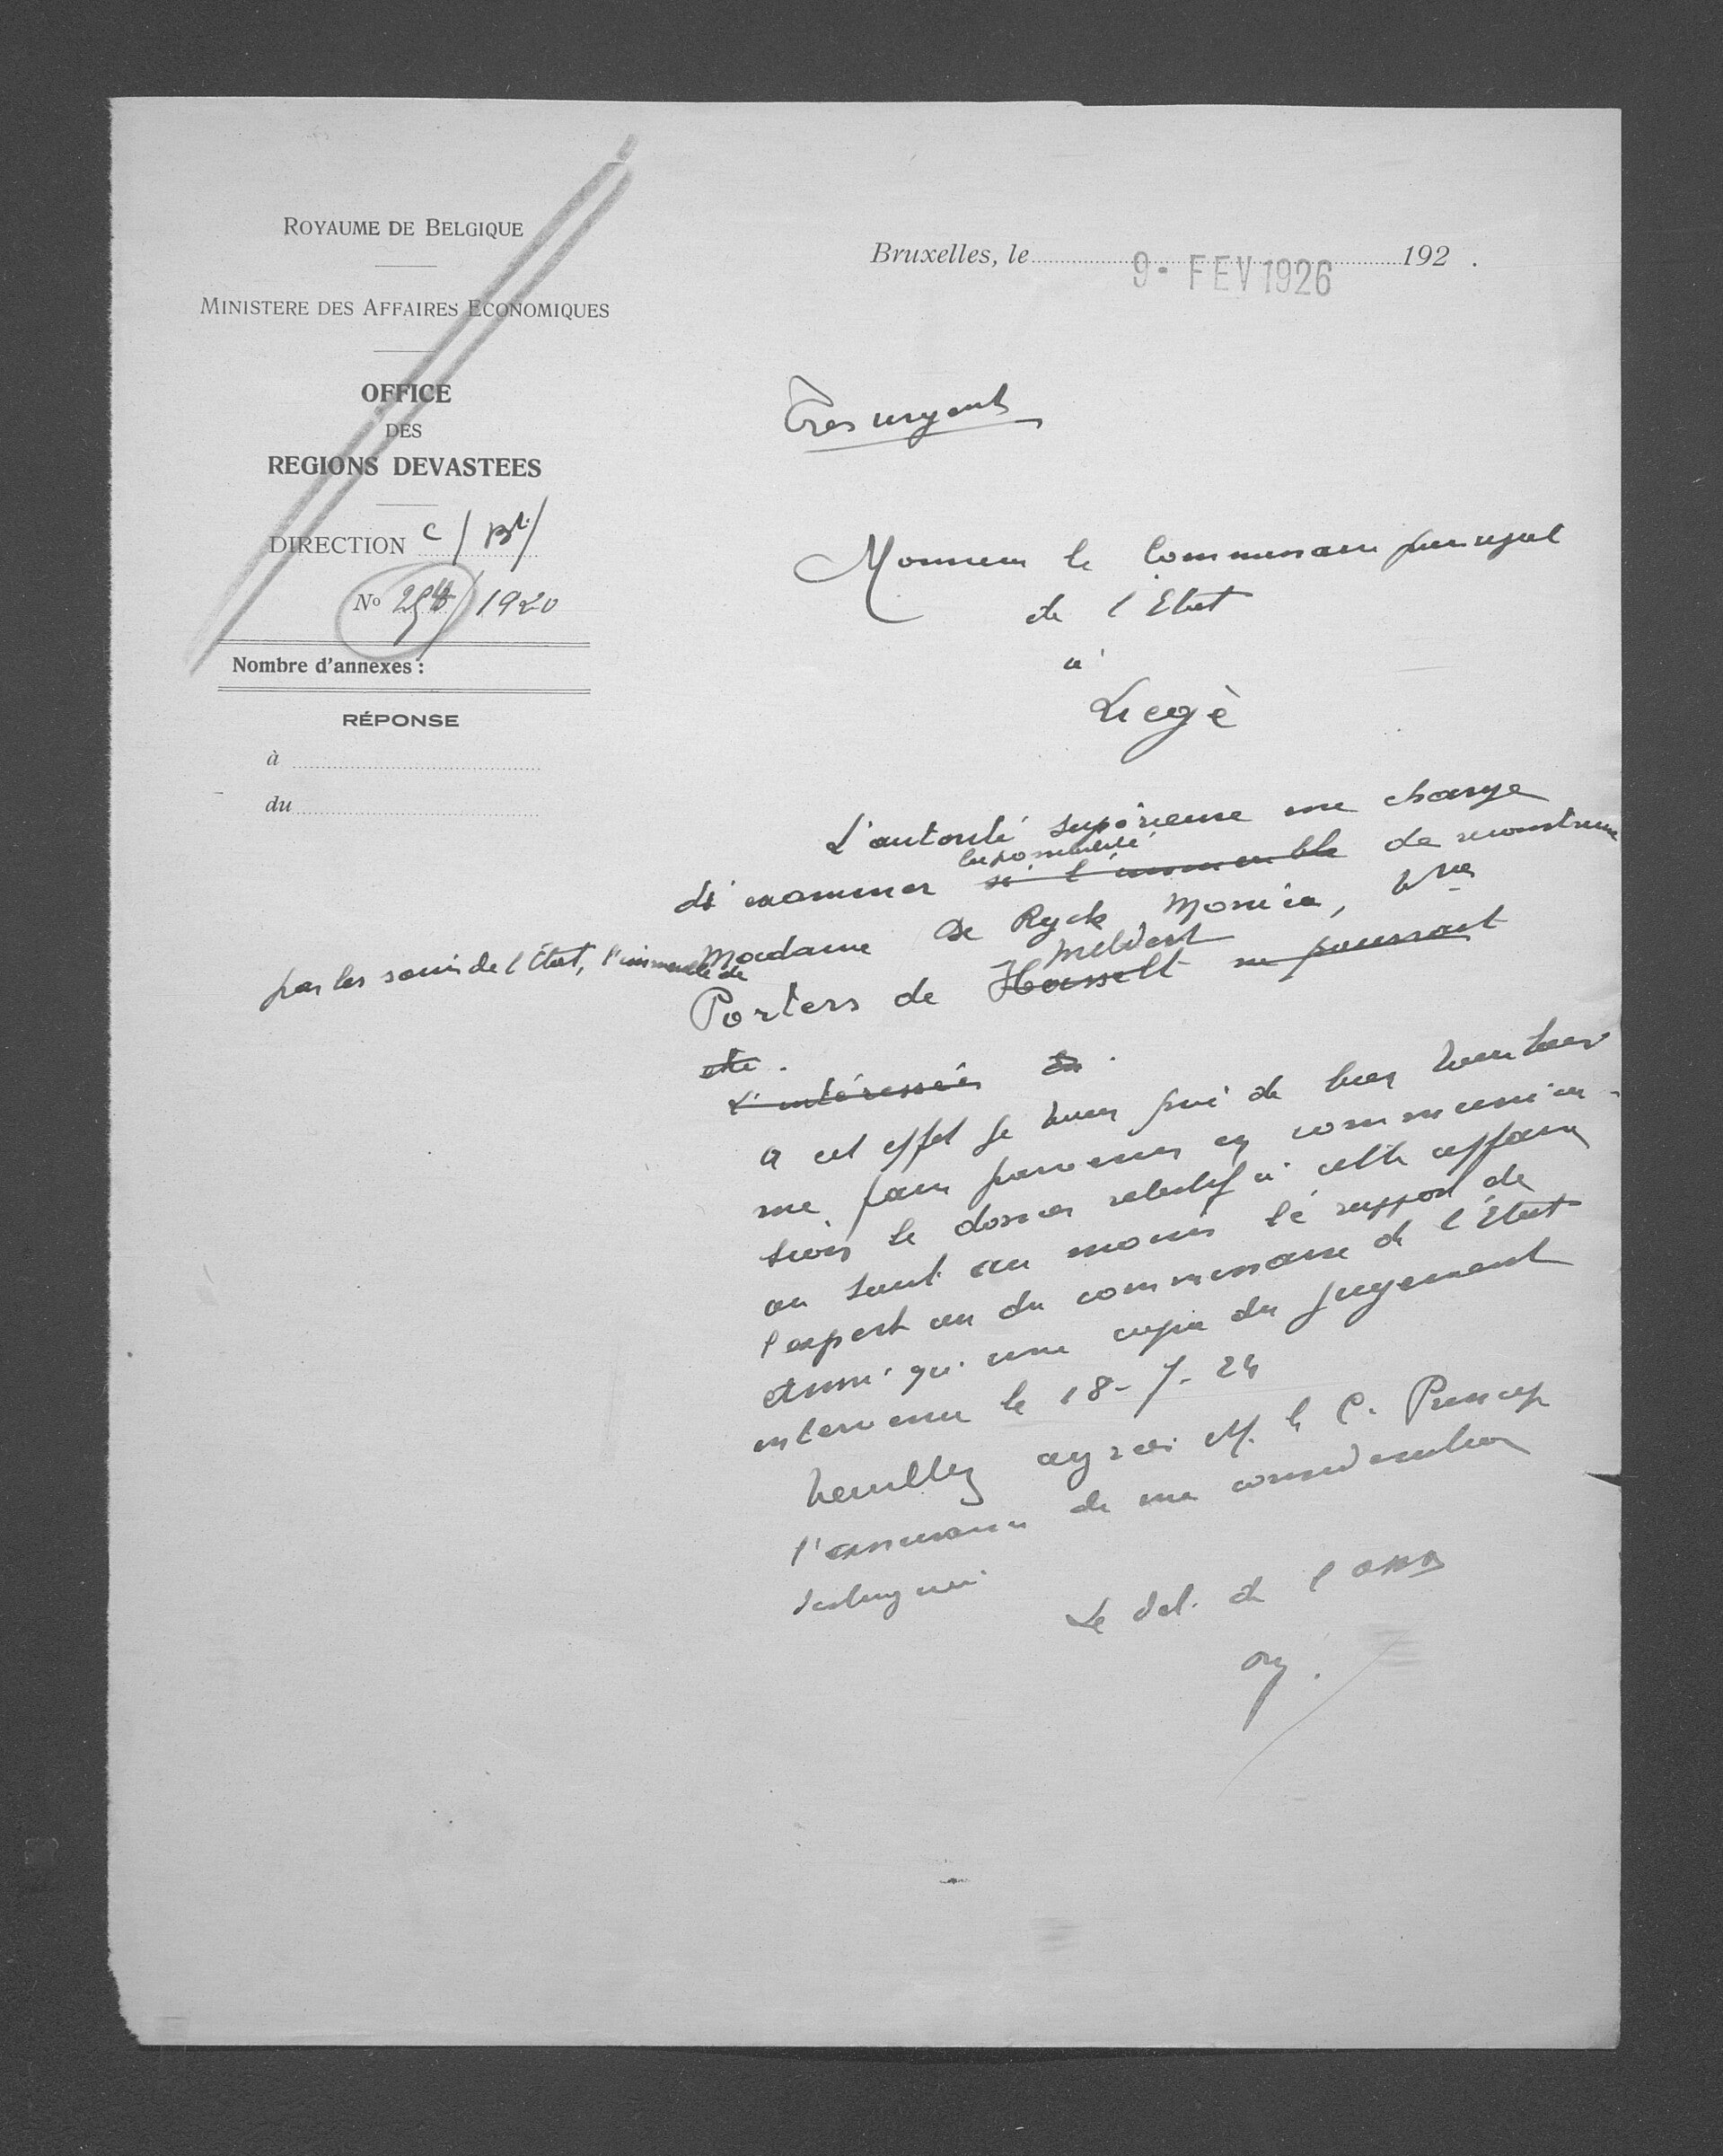 ROYAUME DE BELGIQUE
MINISTERE DES AFFAIRES ECONOMIQUES
OFFICE
DES
REGIONS DEVASTEES
DIRECTION C / Bt/
No /1920
Nombre d'annexes :
RÉPONSE
à
du
Bruxelles, le 192 .
9 - FEV 1926
Tres urgent
Monsieur le Commissaire principal
de l'Etat
à
Liege
L'autorité supérieure me charge
la possibilité
d'examiner si l'immeuble de reconstruire
par les soins de l'État, l'immeuble de
Madame De Ryck Monica, Vve
Meldert
Porters de Hasselt ne pourrait
etre.
L'intéressée
A cet effet je vous prie de bien vouloir
me faire parvenir en communica-
tion le dossier relatif à cette affaire
ou tout au moins le rapport de
l'expert ou du commissaire de l'État
ainsi qu'une copie du jugement
intervenu le 18-7-24
Veuillez agréer M. le C. Princip
l'assurance de ma considération
distinguée
Le del. de l'